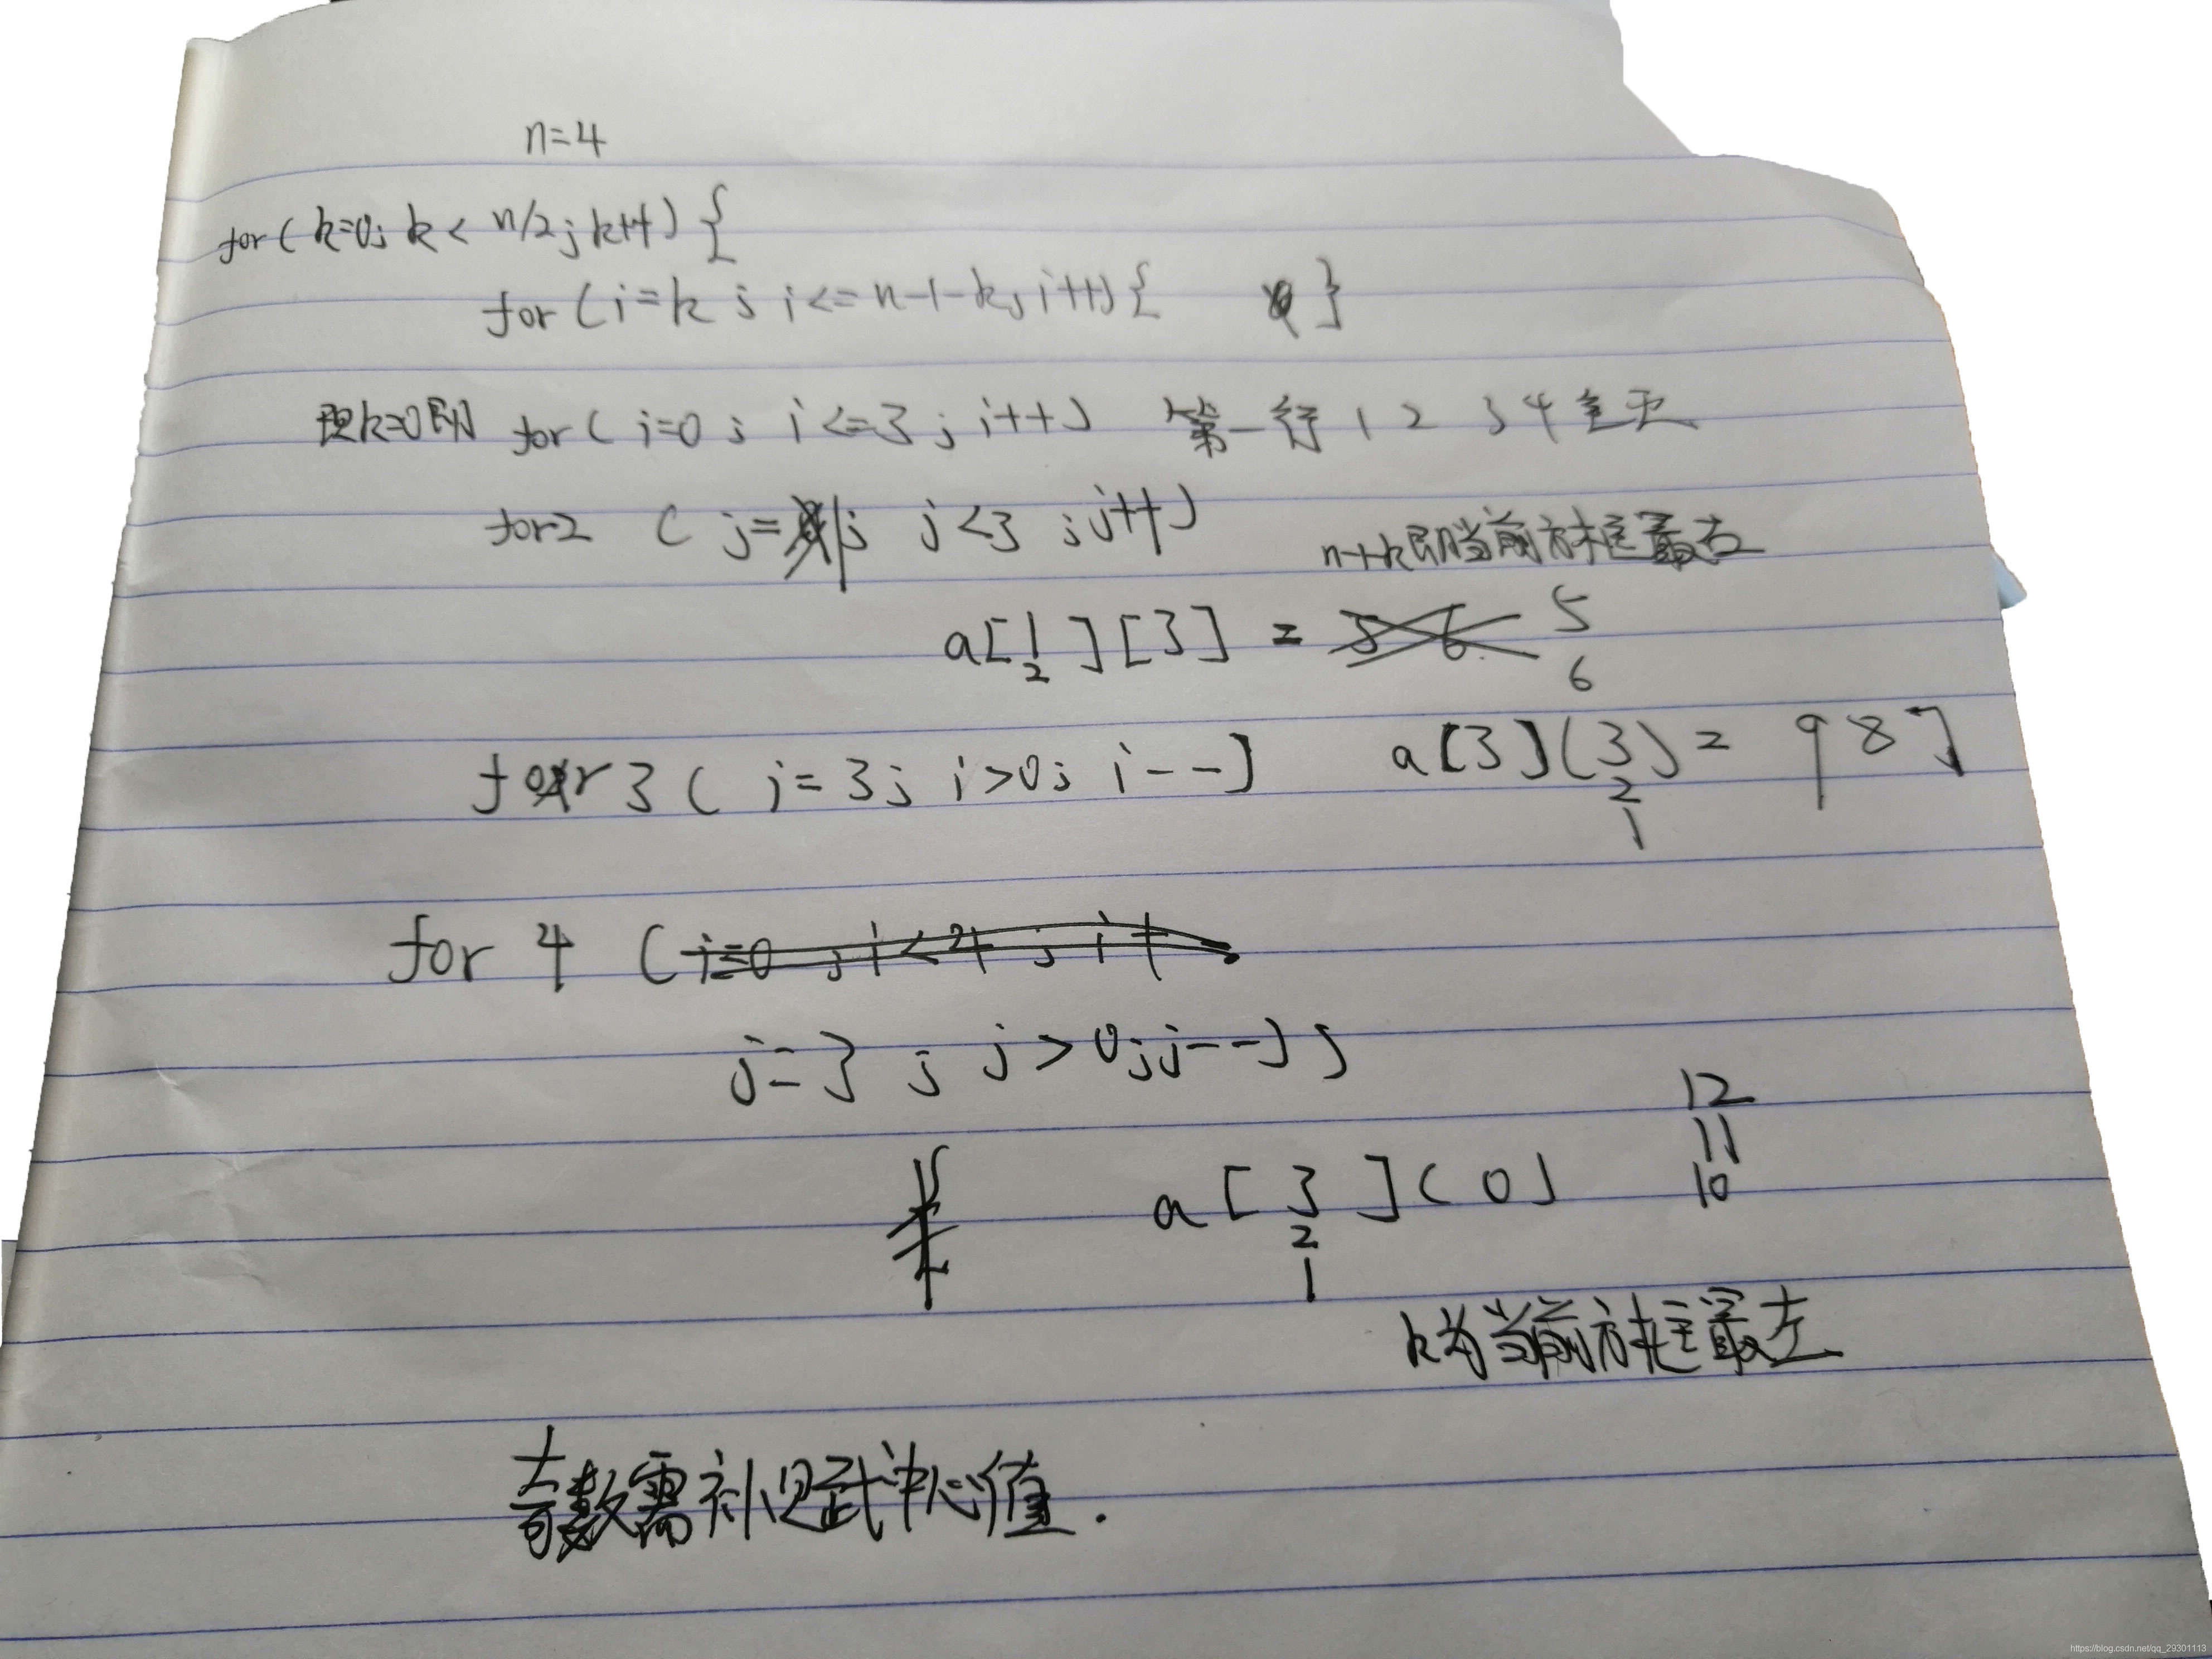 n=4
for( k=0; k < n/2; k++) {
for (i=k ; i<=n-1-k; i++) { }
k=0即 for( i=0 ; i<=3 ; i++) 第一行 1 2 3 4
for2 ( j=1; j<3 ; j++)
即当前方框最右
a[1][3] = 5
2 6
for 3 ( i=3; i>0; i--) a[3](3)= 9 8 7
2
1
for 4 (
j=3 ; j>0;j--);
12
11
a[3](0) 10
2
1
k为当前方框最左
奇数需补足中心值.
https://blog.csdn.net/qq_29301113